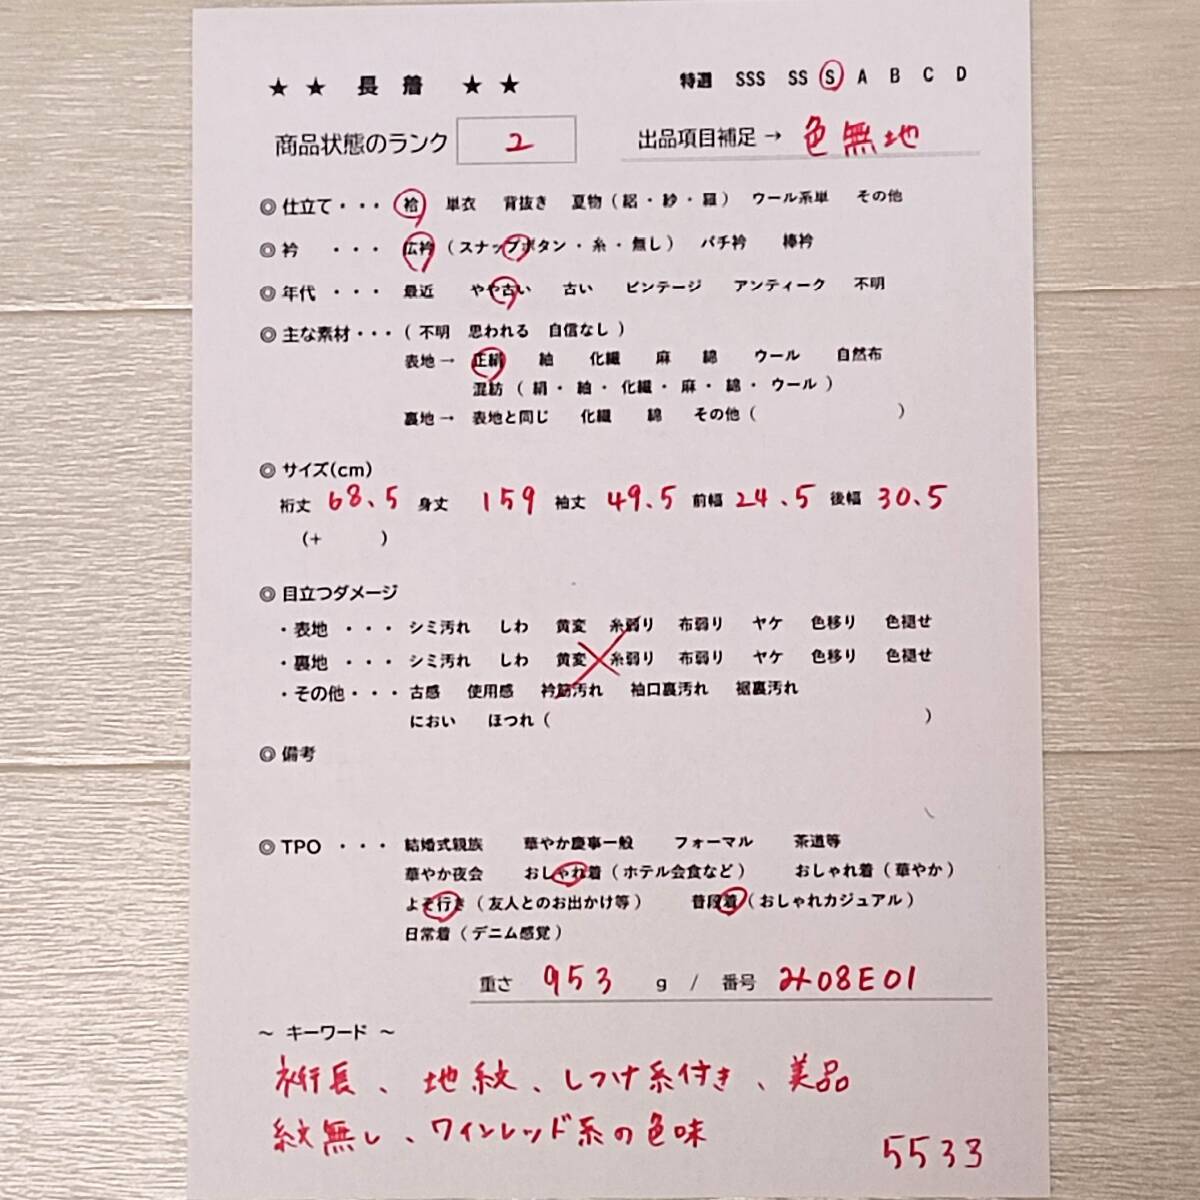 ★ ★ 長 着 ★ ★ 特選 SSS SS S A B C D
商品状態のランク 2 出品項目補足 → 色無地
◎ 仕立て・・・ 袷 単衣 背抜き 夏物 ( 絽 ・ 紗 ・ 羅 ) ウール系単 その他
◎ 衿 ・・・ 広衿 ( スナップボタン ・ 糸 ・ 無し ) バチ衿 棒衿
◎ 年代 ・・・ 最近 やや古い 古い ビンテージ アンティーク 不明
◎ 主な素材・・・ ( 不明 思われる 自信なし )
表地 → 正絹 紬 化繊 麻 綿 ウール 自然布
混紡 ( 絹 ・ 紬 ・ 化繊 ・ 麻 ・ 綿 ・ ウール )
裏地 → 表地と同じ 化繊 綿 その他 ( )
◎ サイズ(cm)
裄丈 68.5 身丈 159 袖丈 49.5 前幅 24.5 後幅 30.5
(+ )
◎ 目立つダメージ
・表地 ・・・ シミ汚れ しわ 黄変 糸弱り 布弱り ヤケ 色移り 色褪せ
・裏地 ・・・ シミ汚れ しわ 黄変 糸弱り 布弱り ヤケ 色移り 色褪せ
・その他・・・ 古感 使用感 衿筋汚れ 袖口裏汚れ 裾裏汚れ
におい ほつれ ( )
◎ 備考
◎ TPO ・・・ 結婚式親族 華やか慶事一般 フォーマル 茶道等
華やか夜会 おしゃれ着 ( ホテル会食など ) おしゃれ着 ( 華やか )
よそ行き ( 友人とのお出かけ等 ) 普段着 ( おしゃれカジュアル )
日常着 ( デニム感覚 )
重さ 953 g / 番号 み08E01
～ キーワード ～
裄長、地紋、しつけ糸付き、美品
紋無し、ワインレッド系の色味
5533